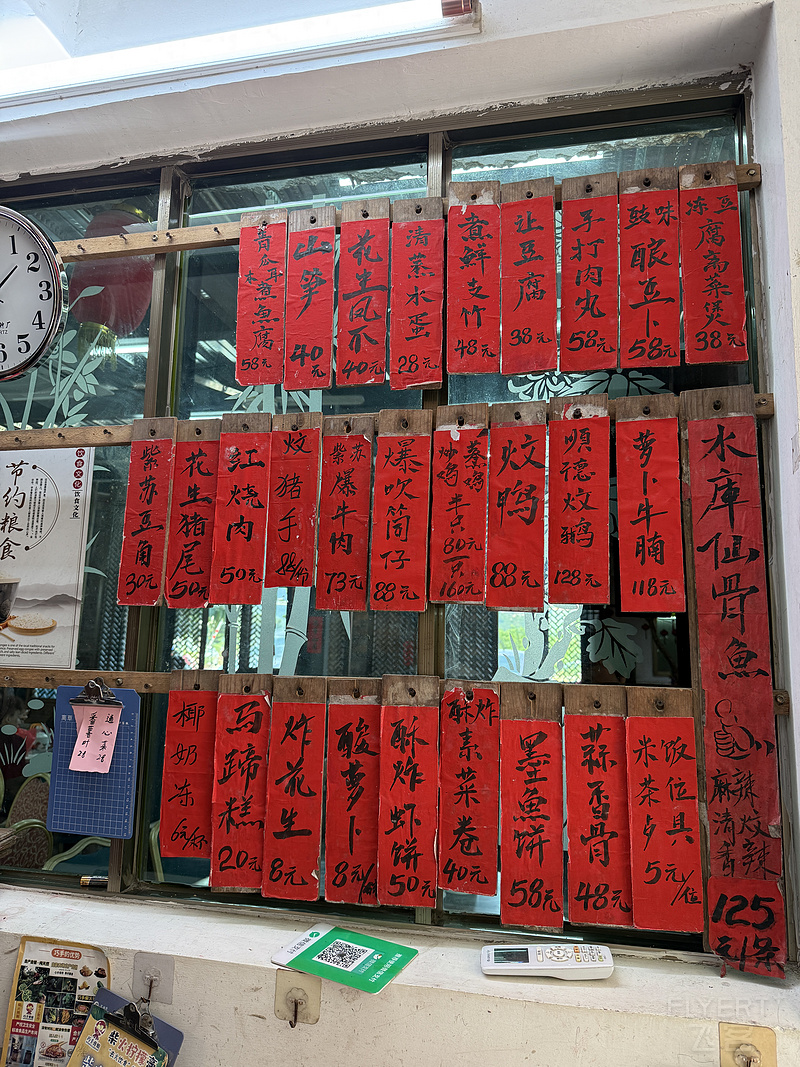 煮魚腐
58元
山笋
40元
花生凤爪
40元
清蒸水蛋
28元
煮鮮支竹
48元
让豆腐
38元
手打肉丸
58元
豉味
酿豆卜
58元
冻豆
腐高菜煲
38元
紫苏豆角
30元
花生猪尾
50元
红烧肉
50元
炆猪手
88/份
紫苏
爆牛肉
73元
爆吹筒仔
88元
炒鸡
蒸鸡
半只
80元
一只
160元
炆鴨
88元
順德炆鵝
128元
萝卜牛腩
118元
水庫仙骨魚
麻辣
清香
炆辣
125
元/条
椰奶冻
6元/杯
马蹄糕
20元
炸花生
8元
酸萝卜
8元/份
酥炸虾饼
50元
酥炸
素菜卷
40元
墨魚饼
58元
蒜香骨
48元
饭位具
米茶
5元/位
节约粮食
饮食文化
番薯叶
28
通心菜
28
1
2
3
4
5
6
巧手的优势
柴火柠檬
FLYERT